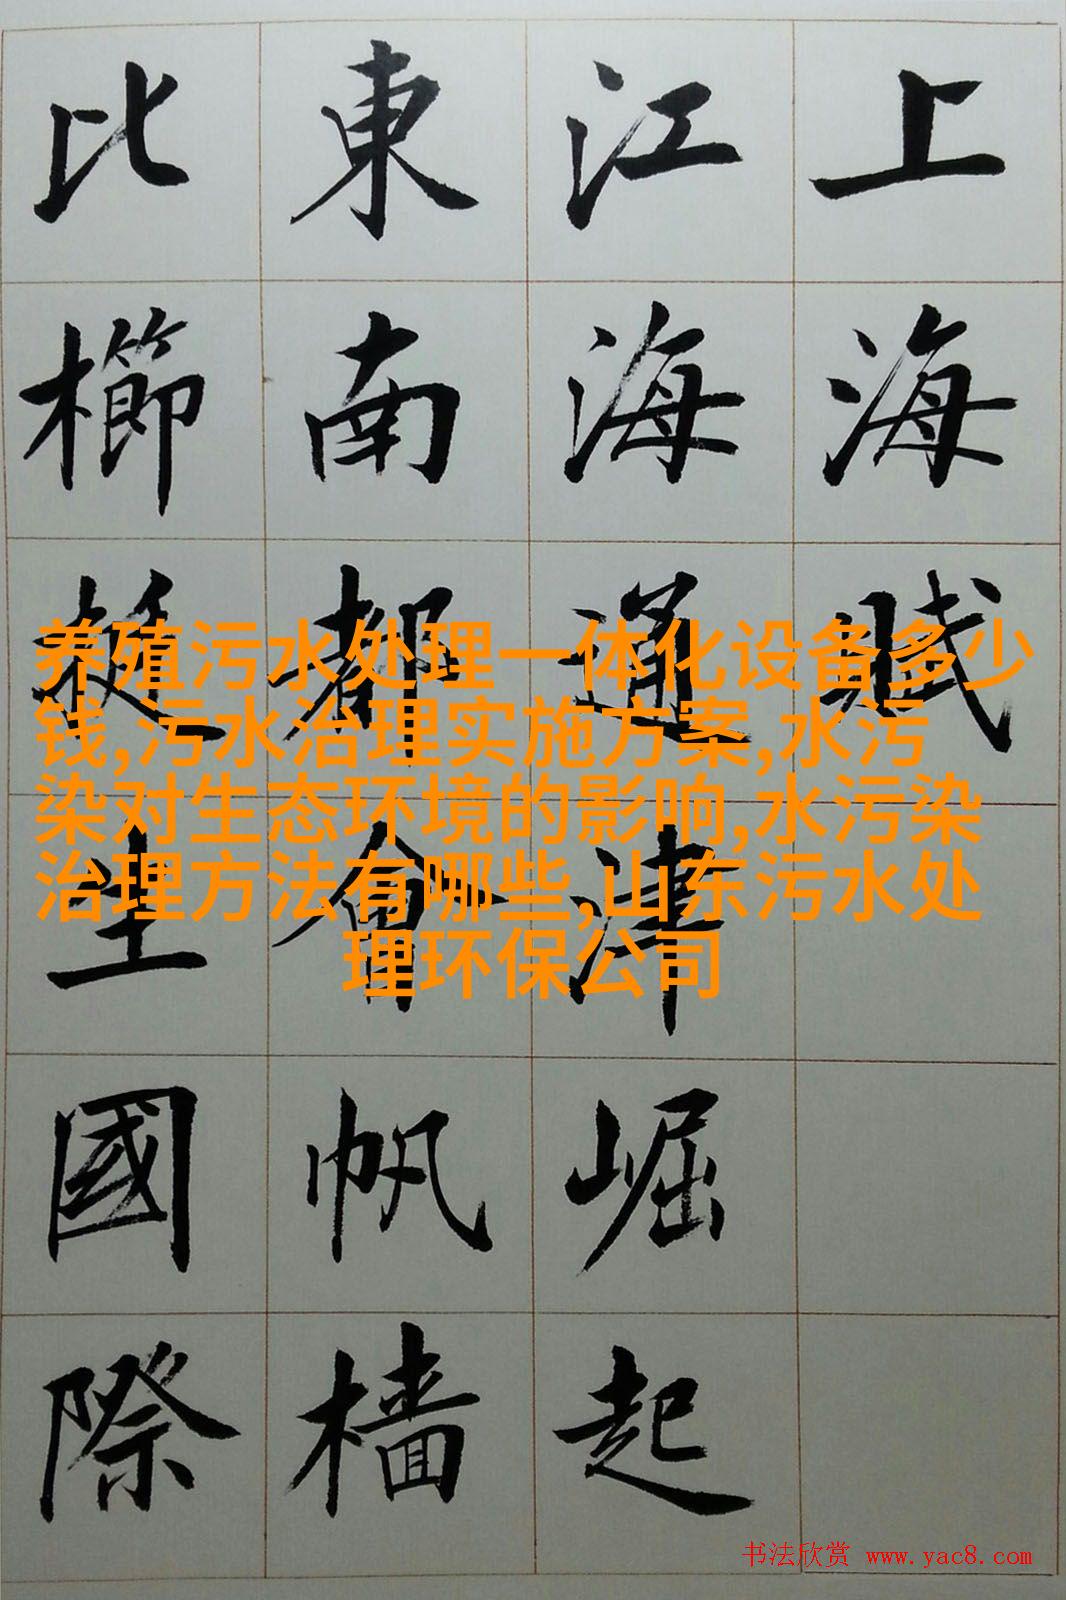 上海賦
江海通津崛起
東南都會帆檣
比櫛挺生國際
养殖污水处理一体化设备多少
钱,污水治理实施方案,水污
染对生态环境的影响,水污染
治理方法有哪些,山东污水处
理环保公司
书法欣赏 www.yac8.com